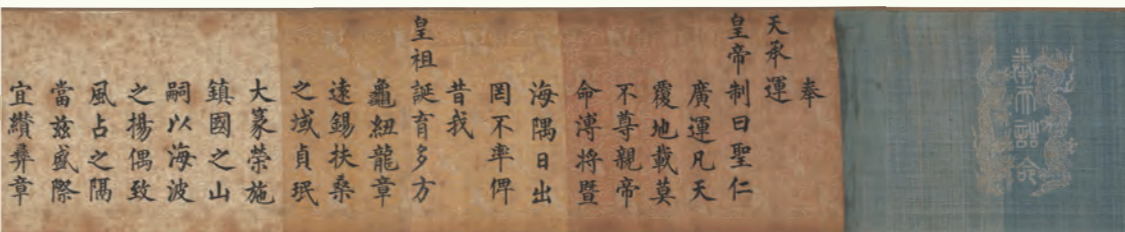 奉天誥命
奉
天承運
皇帝制曰聖仁
廣運凡天
覆地載莫
不尊親帝
命溥將暨
海隅日出
罔不率俾
昔我
皇祖誕育多方
龜紐龍章
遠錫扶桑
之域貞珉
大篆榮施
鎮國之山
嗣以海波
之揚偶致
風占之隔
當兹盛際
宜纘彝章